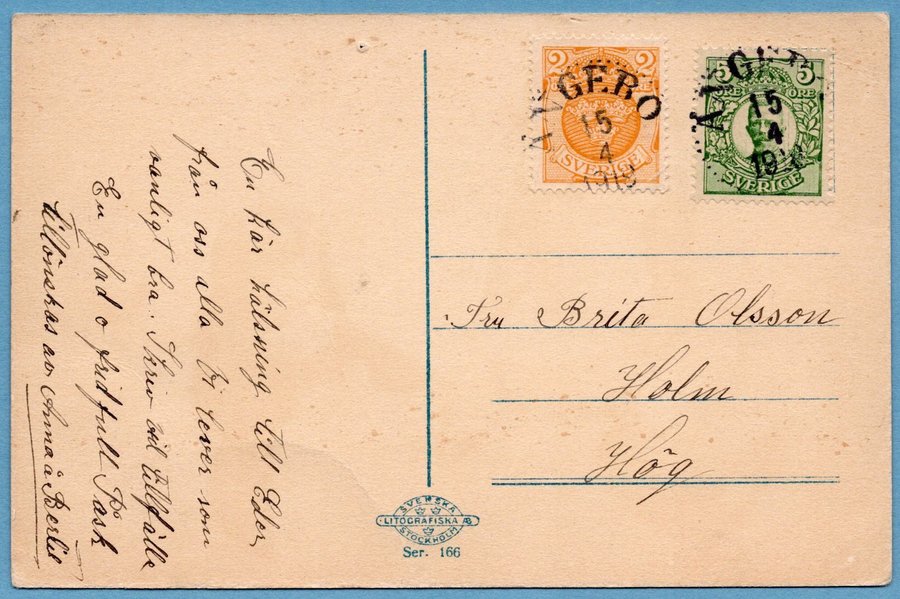 En kär hälsning till Eder,
från oss alla Vi lever som
vanligt bra. Skriv vid tillfälle
En glad o fridfull Påsk
tillönskas av Anna å Bertil
2 2
GEBO
15
4
1919
SVERIGE
5 5
ÖRE ÖRE
15
4
SVERIGE
Fru Brita Olsson
Holm
Hög
SVENSKA
LITOGRAFISKA AB
STOCKHOLM
Ser. 166